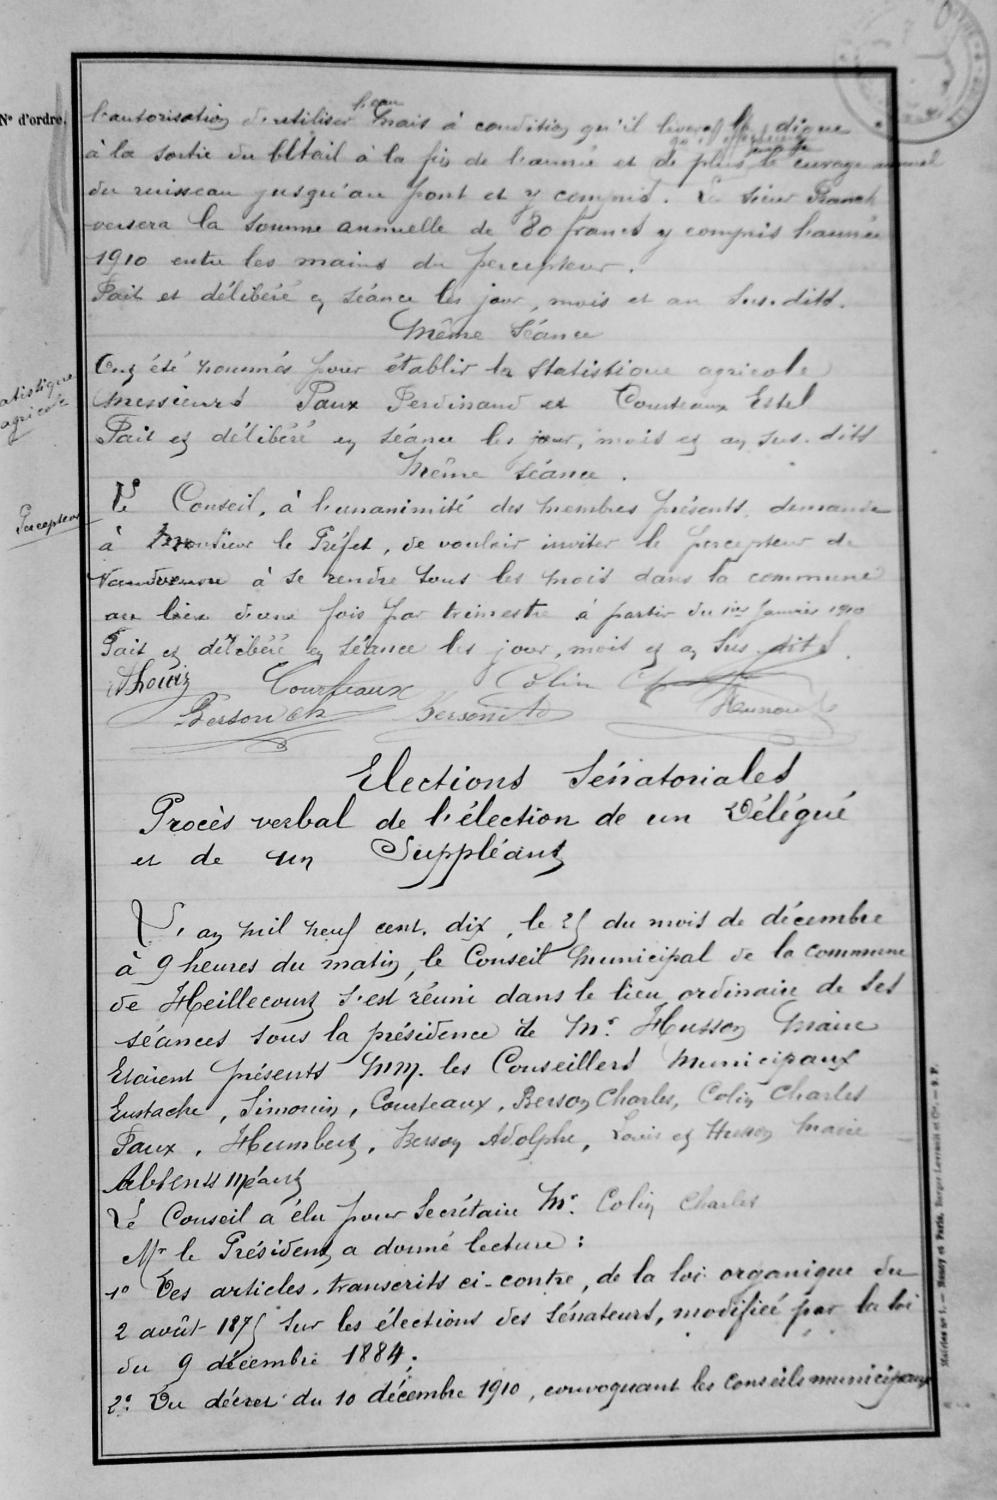 N° d'ordre.
l'autorisation d'utiliser l'eau mais à condition qu'il digue
à la sortie du bétail à la fin de l'année et de plus le curage annuel
du ruisseau jusqu'au pont et y compris. Le sieur
versera la somme annuelle de 80 francs y compris l'année
1910 entre les mains du percepteur.
Fait et délibéré en séance les jour, mois et an sus-dits.
Même séance
statistique
agricole
Ont été nommés pour établir la statistique agricole
Messieurs Faux Ferdinand et Courteaux Estel
Fait et délibéré en séance les jour, mois et an sus-dits
Même séance.
Percepteur
Le Conseil, à l'unanimité des membres présents, demande
à Monsieur le Préfet, de vouloir inviter le percepteur de
à se rendre tous les mois dans la commune
au lieu d'une fois par trimestre à partir du 1er Janvier 1910
Fait et délibéré en séance les jour, mois et an sus-dits.
Courteaux Colin
Berson ch
Elections Sénatoriales
Procès verbal de l'élection de un Délégué
et de un Suppléant
L'an mil neuf cent dix, le 25 du mois de décembre
à 9 heures du matin, le Conseil Municipal de la commune
de Heillecourt s'est réuni dans le lieu ordinaire de ses
séances sous la présidence de Mr Husson Maire
Etaient présents MM. les Conseillers Municipaux
Eustache, Simonin, Courteaux, Berson Charles, Colin Charles
Faux, Humbert, Berson Adolphe, Louis et Husson Maire
Absents néant
Le Conseil a élu pour Secrétaire Mr Colin Charles
Mr le Président a donné lecture :
1° Des articles, transcrits ci-contre, de la loi organique du
2 août 1875 sur les élections des Sénateurs, modifiée par la loi
du 9 décembre 1884;
2° Du décret du 10 décembre 1910, convoquant les conseils municipaux
Mairies n° 1. — Nancy et Paris, Berger-Levrault et Cie. — S.P.